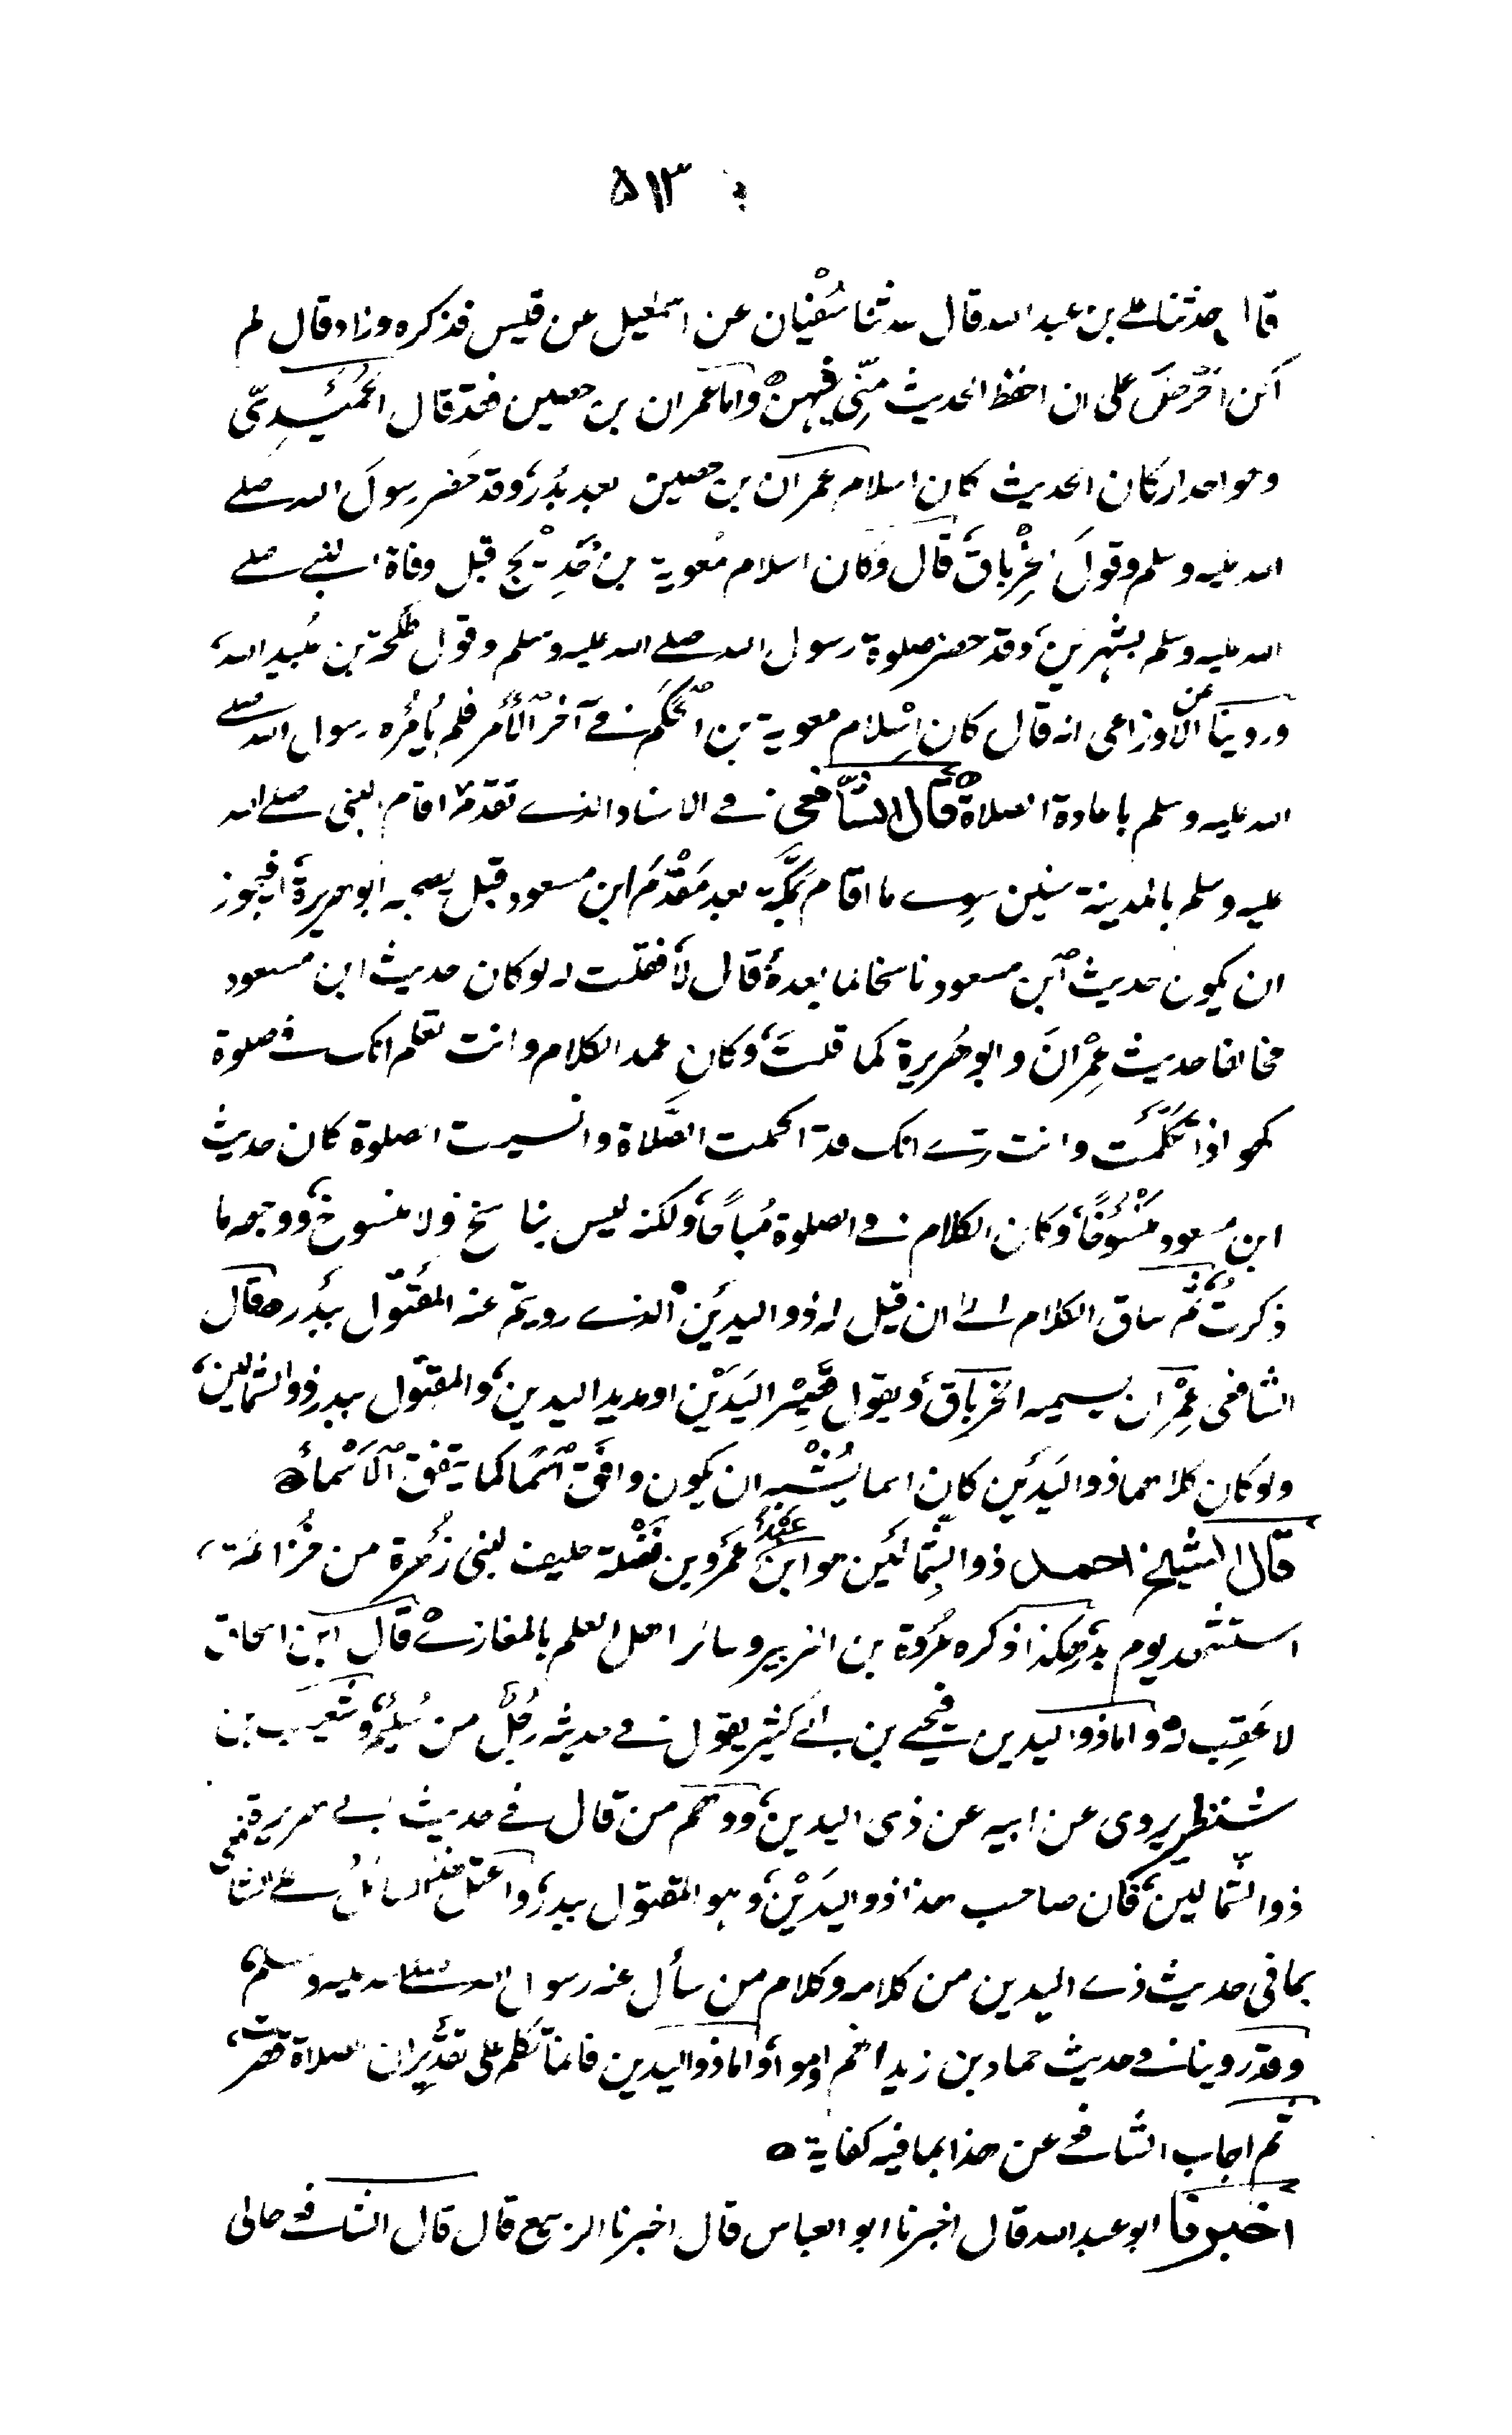 ٥١٣
قال حدثنا علي بن عبد الله قال حدثنا سُفْيان عن اسمٰعيل عن قيس فذكره وزاد قال لم
اكن احرصَ على ان احفظ الحديث مِنّي فيهنّ واما عمران بن حصين فقد قال الحُمَيْدِيّ
وهو احد اركان الحديث كان اسلام عمران بن حصين بعد بدْر وقد حضر رسولَ الله صلى
الله عليه وسلم وقولَ الخِرْباق قال وكان اسلام مُعوية بن حُدَيْج قبل وفاة النبي صلى
الله عليه وسلم بشهرين وقد حضر صلوة رسول الله صلى الله عليه وسلم وقول طلحة بن عُبيد الله
وروينا عن الاوزاعي انه قال كان اِسْلام معوية بن الحكم في آخر الأمر فلم يأمُره رسول الله صلى
الله عليه وسلم باعادة الصلاة قال الشافعي في الاسناد الذي تقدم اقام النبي صلى الله
عليه وسلم بالمدينة سنين سوى ما اقام بمكّة بعد مَقْدَم ابن مسعود قبل يصحبه ابو هريرة افيجوز
ان يكون حديث ابن مسعود ناسخا لما بعده قال لا فقلت له لو كان حديث ابن مسعود
مخالفا حديث عِمْرانَ وابو هُريرة كما قلتَ وكان عمد الكلام وانت تعلم انك في صلوة
كهو اذا تكلّمت وانت ترى انك قد اكملت الصَّلاة وانسيت الصلوة كان حديث
ابن مسعود مَنْسُوخًا وكان الكلام في الصلوة مُباحًا ولكنه ليس بناسخ ولا منسوخ ووجهه ما
ذكرتُ ثُم ساق الكلام الى ان قيل له ذو اليدين الذي رويتم عنه المقتول ببدر فقال
الشافعي عِمْران يسميه الخرباق ويقول قصِيْر اليَدَيْن او مديد اليدين والمقتول ببدر ذو الشمالين
ولو كان كلاهما ذو اليَدين كان اسما يُشْبه ان يكون وافَق اسْمًا كما يتفق الاَسْماء
قال الشيخ احمد ذو الشِّمالَين هو ابن عَبْد عَمرو بن نَضْلة حليف لبني زُهرة من خُزاعة
استشهد يوم بدر هكذا ذكره عُروة بن الزبير وسائر اهل العلم بالمغازي قال ابن اسحاق
لا عَقِب له واما ذو اليدين فيحيى بن ابي كثير يقول في حديثه رجُلٌ من سُلَيم وشعيب بن
مُطير يروي عن ابيه عن ذي اليدين ووهم من قال في حديث ابي هريرة
ذو الشمالين فكان صاحب هذا ذو اليَدَيْن وهو المقتول ببدر واعتل السائل على الشافعي
بما في حديث ذي اليدين من كلامه وكلام من سأل عنه رسول الله صلى الله عليه وسلم
وقد روينا في حديث حماد بن زيد انهم اوموا واما ذو اليدين فانما تكلم على تقدير ان الصلاة قصرت
ثم اجاب الشافعي عن هذا بما فيه كفاية
اخبرنا ابو عبد الله قال اخبرنا ابو العباس قال اخبرنا الربيع قال قال الشافعي حالى